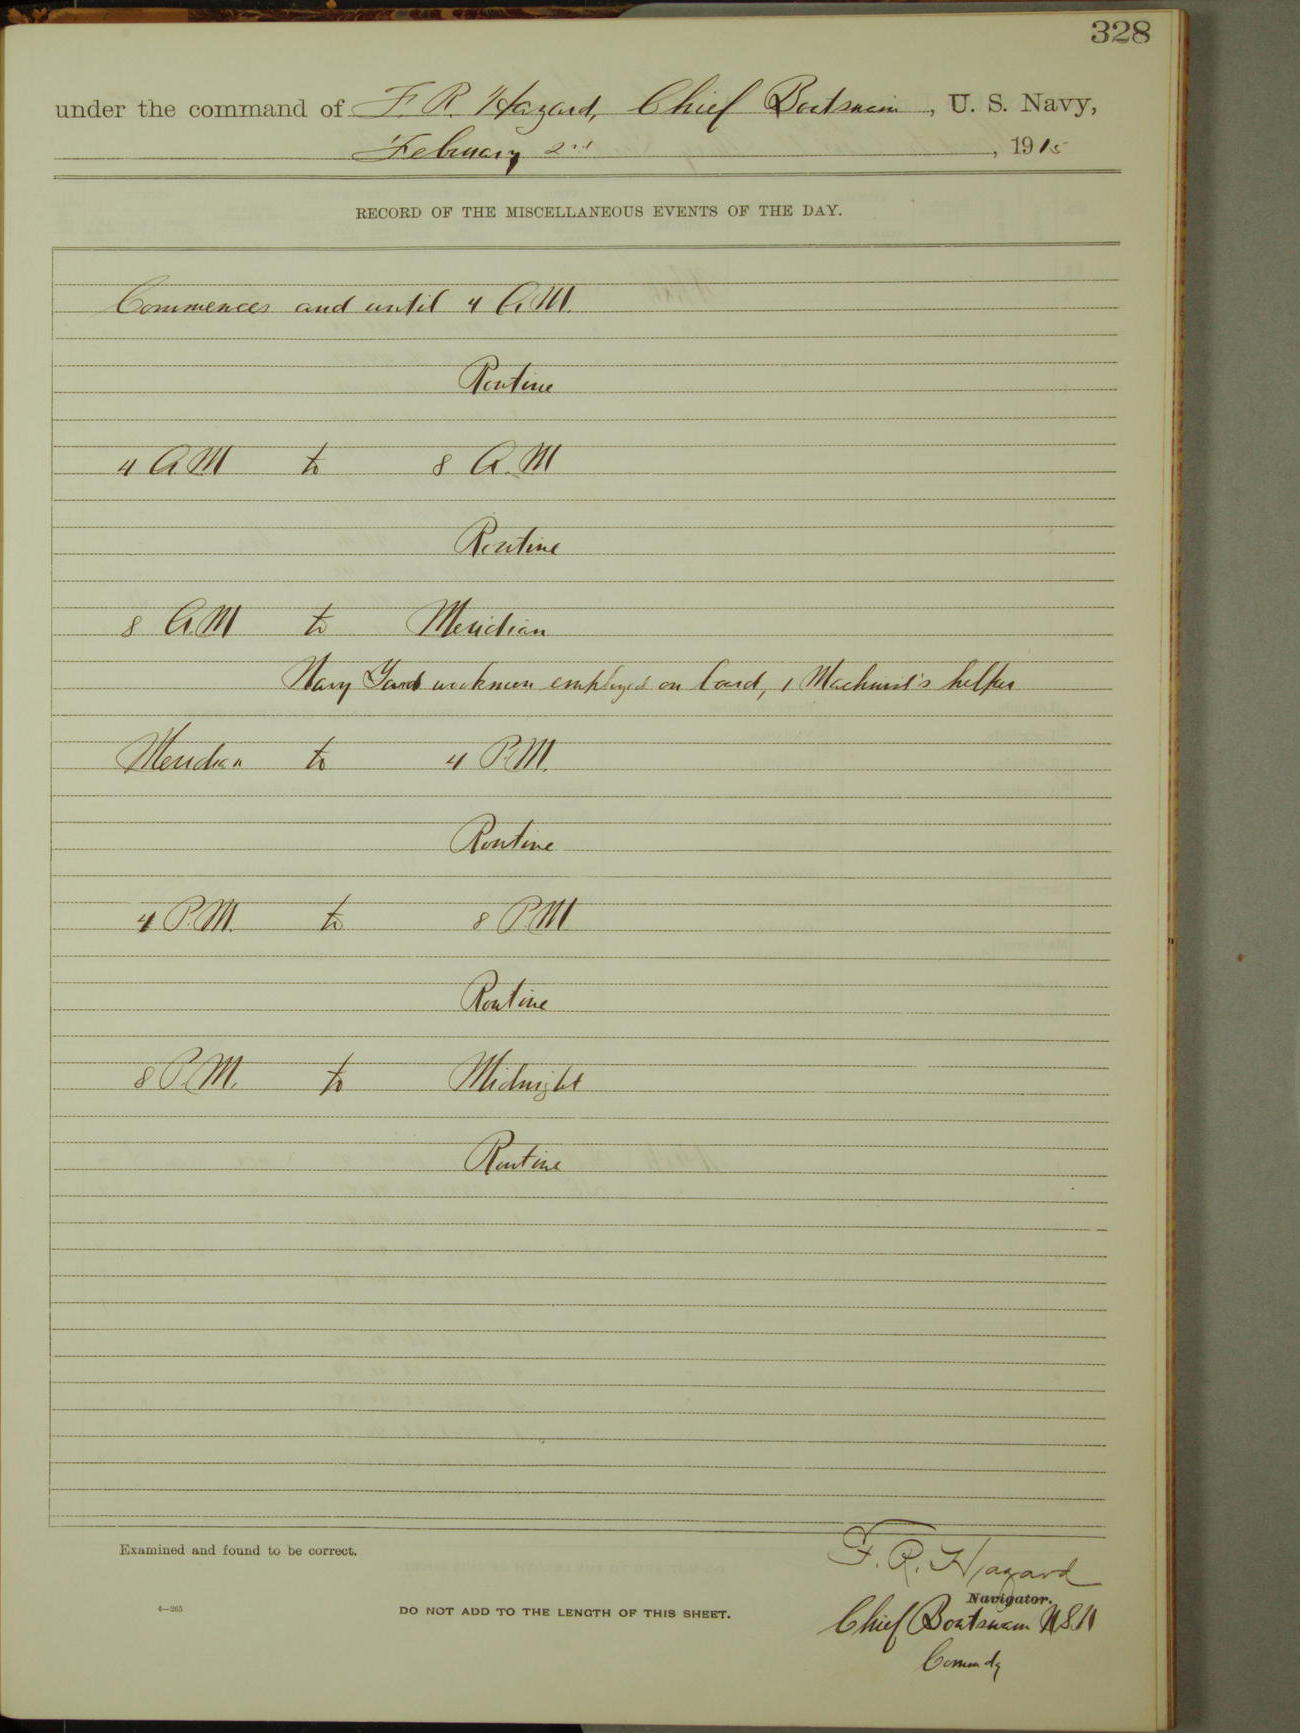 328
under the command of F. R. Hazard, Chief Boatswain, U. S. Navy,
February 2nd, 1915
RECORD OF THE MISCELLANEOUS EVENTS OF THE DAY.
Commences and until 4 A.M.
Routine
4 A.M to 8 A.M
Routine
8 A.M to Meridian
Navy Yard workmen employed on board, 1 Machinist's helper
Meridian to 4 P.M.
Routine
4 P.M. to 8 P.M
Routine
8 P.M. to Midnight
Routine
Examined and found to be correct.
F. R. Hazard
Navigator.
4—265
DO NOT ADD TO THE LENGTH OF THIS SHEET.
Chief Boatswain U.S.N
Commdg